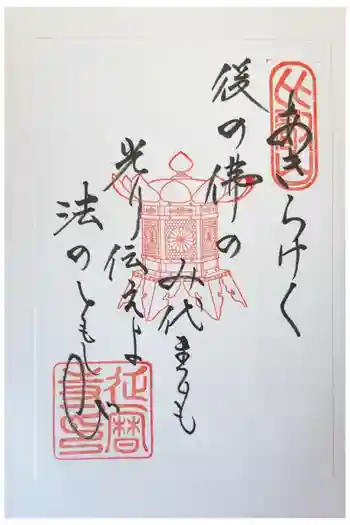 あきらけく
後の佛の
み代までも
光り伝えよ
法のともしび
延暦